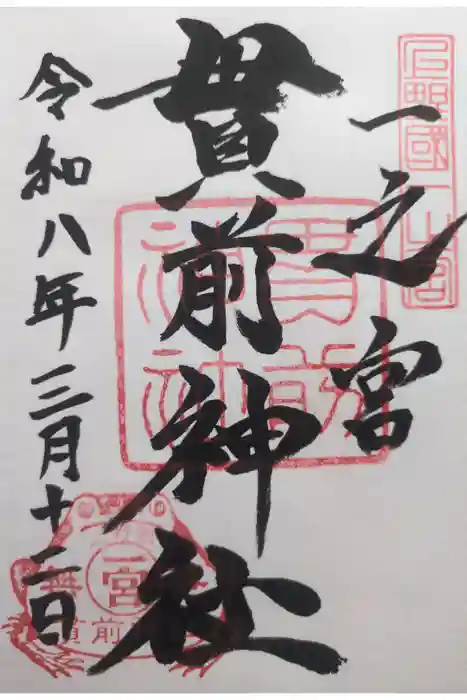 上野國一之宮
一之宮
貫前神社
令和八年三月十二日
貫前神社
一宮
無
貫前